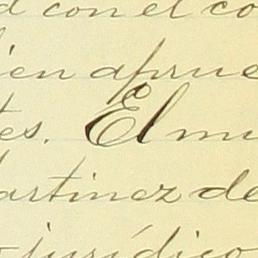 d con el co
ien aprue
tes. El mu
artinez de
jurídico